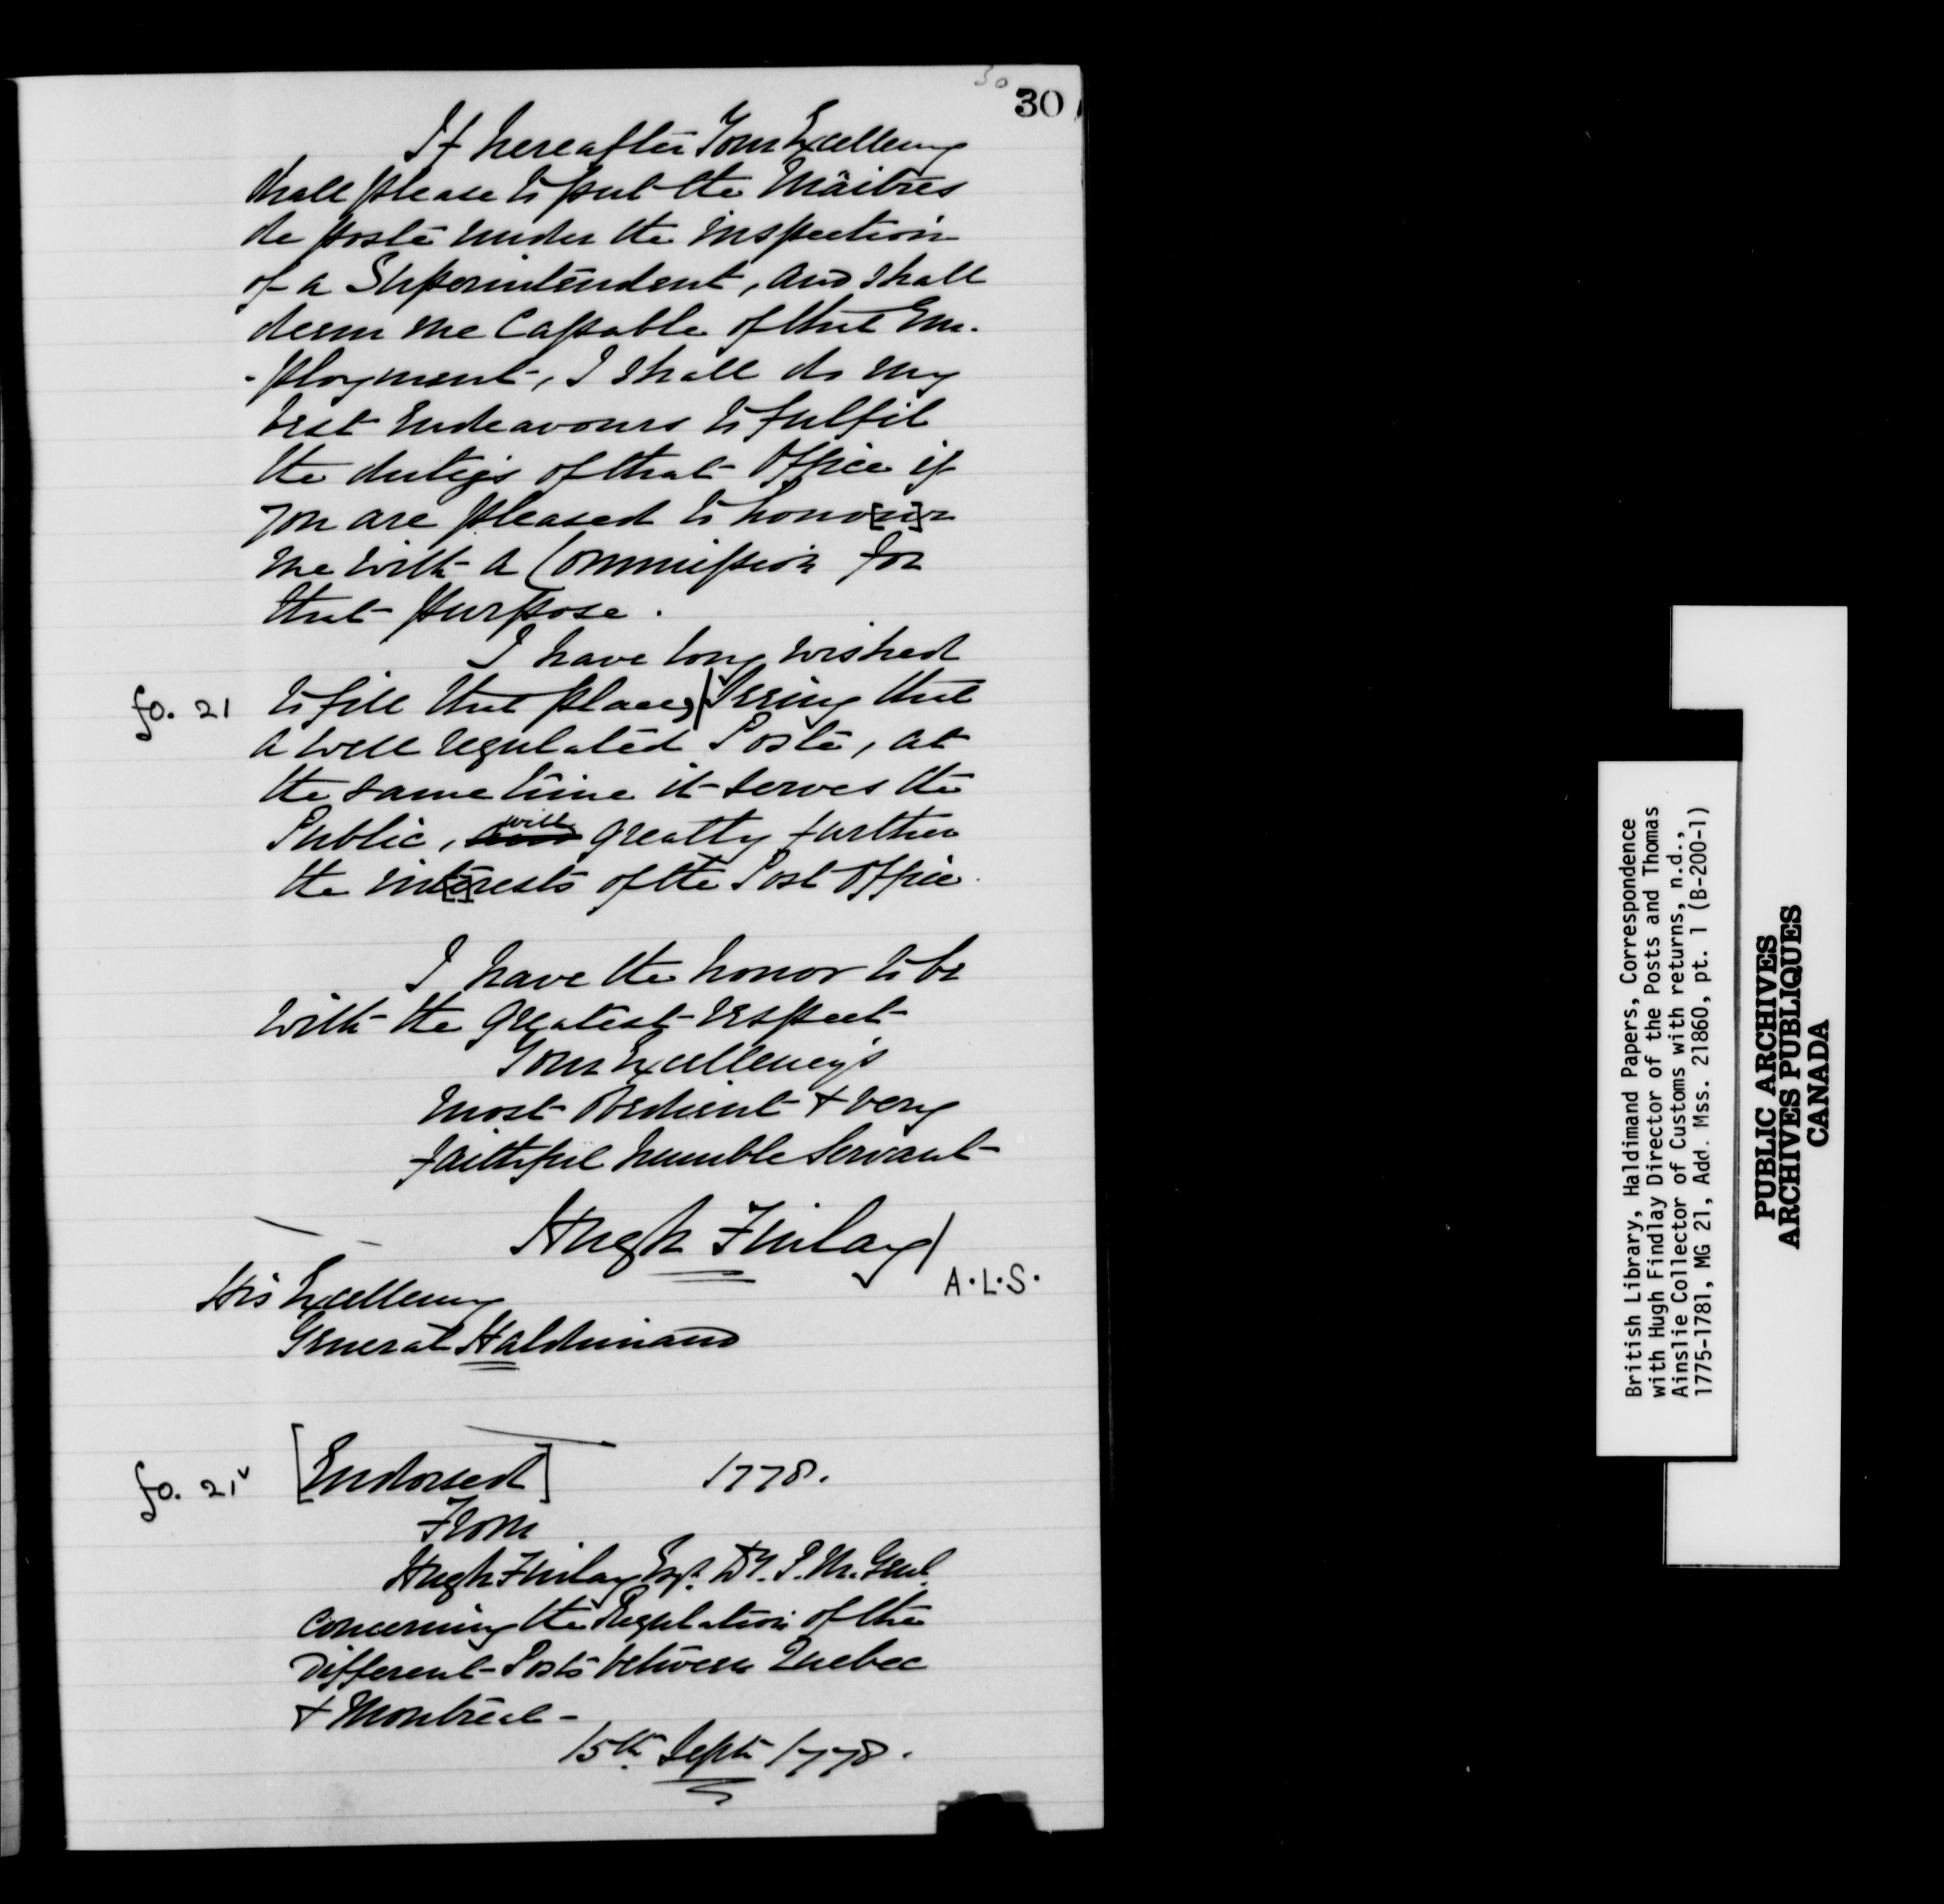 30
30
If hereafter Your Excellency
shall please to put the Mâitres
de poste under the inspection
of a Superintendent, and shall
deem me Capable of that Em-
-ployment, I shall do my
best Endeavours to fulfil
the dutys of that Office if
you are pleased to hono[u]r
me with a Commission for
that purpose.
I have long wished
fo. 21 to fill that place, / seeing that
a well regulated Poste, at
the same time it serves the
Public, will greatly further
the int[e]rests of the Post Office.
I have the honor to be
with the greatest respect
Your Excellency's
most Obedient & very
faithful humble Servant
Hugh Finlay /
A.L.S.
His Excellency
General Haldimand
fo. 21v [Endorsed] 1778.
From
Hugh Finlay Esqr. Dy. P. Mr. Genl.
Concerning the Regulation of the
Different Posts between Quebec
& Montreal -
15th Septr 1778.
British Library, Haldimand Papers, Correspondence
with Hugh Findlay Director of the Posts and Thomas
Ainslie Collector of Customs with returns, n.d.,
1775-1781, MG 21, Add. Mss. 21860, pt. 1 (B-200-1)
PUBLIC ARCHIVES
ARCHIVES PUBLIQUES
CANADA